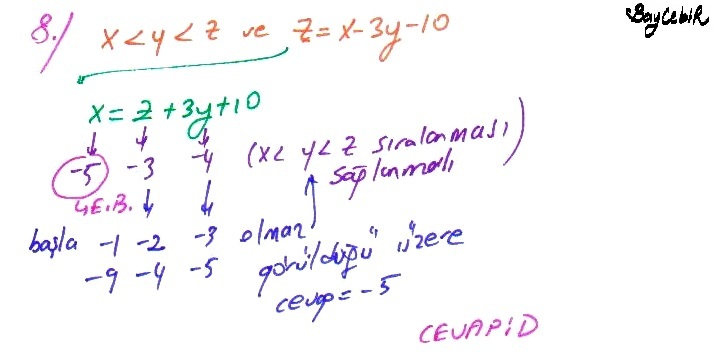 BayCebiR
8./ x<y<z ve z=x-3y-10
x=z+3y+10
-5 -3 -4 (x< y<z sıralanması)
sağlanmalı
Y.E.B.
başla -1 -2 -3 olmaz
-9 -4 -5 görüldüğü üzere
cevap=-5
CEVAP:D